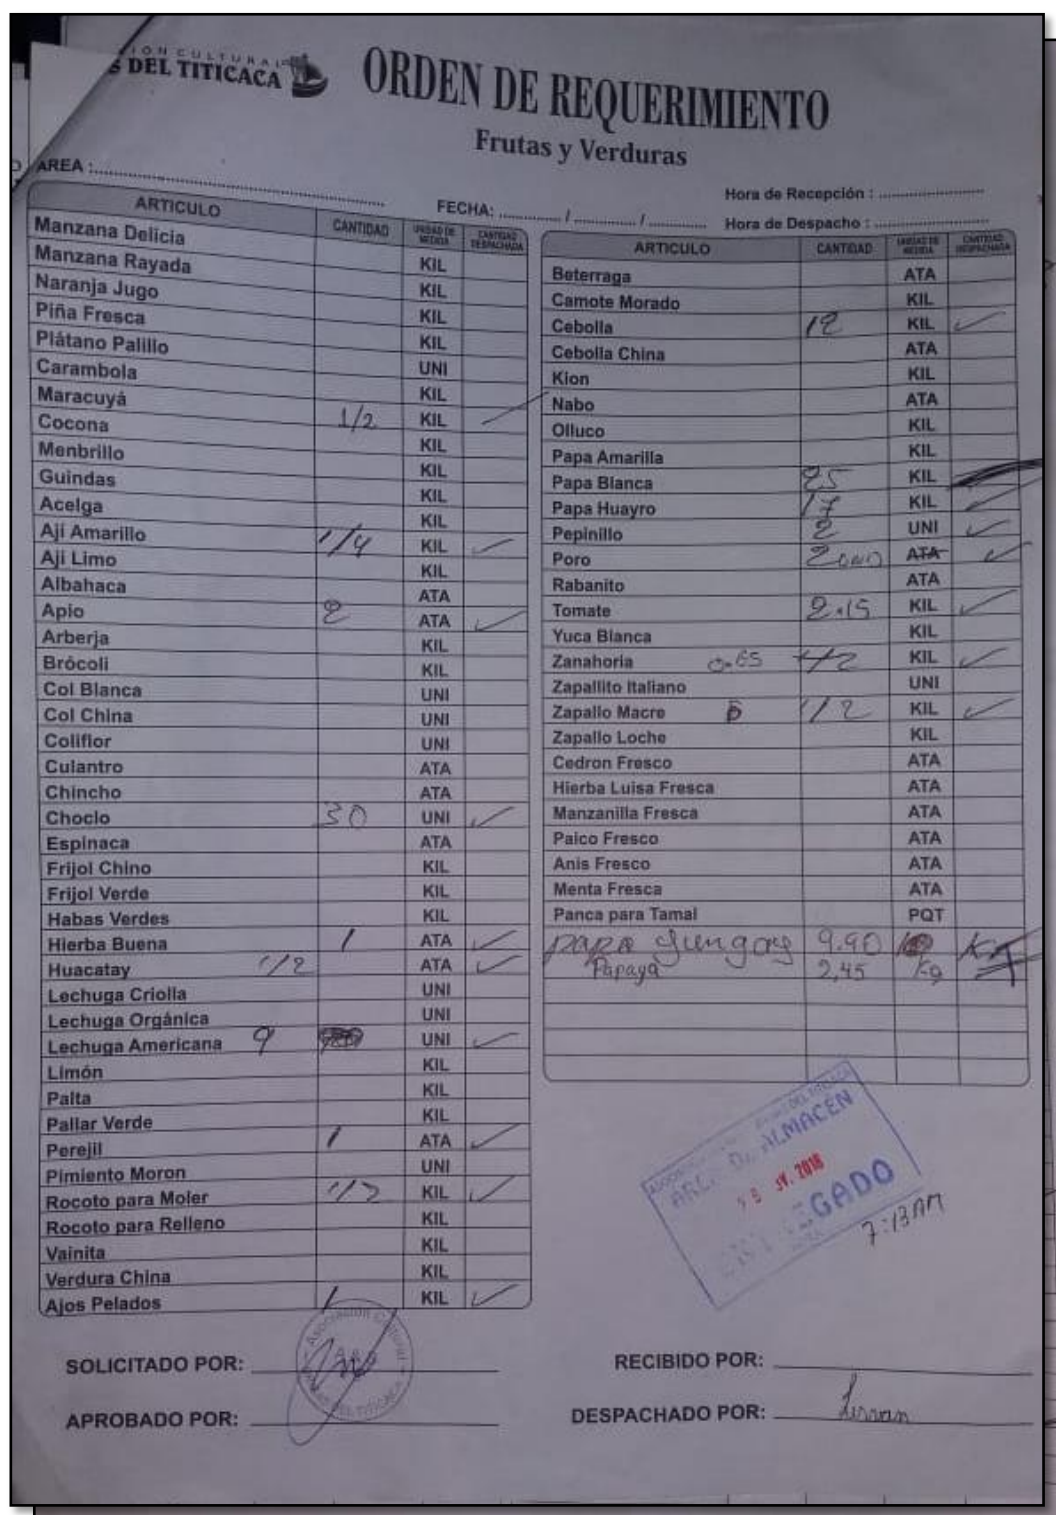 ION CULTURAL
S DEL TITICACA
ORDEN DE REQUERIMIENTO
Frutas y Verduras
AREA :
FECHA: / /
Hora de Recepción :
Hora de Despacho :
ARTICULO CANTIDAD UNIDAD DE MEDIDA CANTIDAD DESPACHADA
Manzana Delicia KIL
Manzana Rayada KIL
Naranja Jugo KIL
Piña Fresca KIL
Plátano Palillo UNI
Carambola KIL
Maracuyá 1/2 KIL
Cocona KIL
Menbrillo KIL
Guindas KIL
Acelga KIL
Ají Amarillo 1/4 KIL
Ají Limo KIL
Albahaca ATA
Apio 2 ATA
Arberja KIL
Brócoli KIL
Col Blanca UNI
Col China UNI
Coliflor UNI
Culantro ATA
Chincho ATA
Choclo 30 UNI
Espinaca ATA
Frijol Chino KIL
Frijol Verde KIL
Habas Verdes KIL
Hierba Buena 1 ATA
Huacatay 1/2 ATA
Lechuga Criolla UNI
Lechuga Orgánica UNI
Lechuga Americana 9 UNI
Limón KIL
Palta KIL
Pallar Verde KIL
Perejil 1 ATA
Pimiento Moron UNI
Rocoto para Moler 1/2 KIL
Rocoto para Relleno KIL
Vainita KIL
Verdura China KIL
Ajos Pelados 1 KIL
ARTICULO CANTIDAD UNIDAD DE MEDIDA CANTIDAD DESPACHADA
Beterraga ATA
Camote Morado KIL
Cebolla 12 KIL
Cebolla China ATA
Kion KIL
Nabo ATA
Olluco KIL
Papa Amarilla KIL
Papa Blanca 25 KIL
Papa Huayro 17 KIL
Pepinillo 2 UNI
Poro 2 UNID ATA
Rabanito ATA
Tomate 2.15 KIL
Yuca Blanca KIL
Zanahoria 0.65 1/2 KIL
Zapallito Italiano UNI
Zapallo Macre 1/2 KIL
Zapallo Loche KIL
Cedron Fresco ATA
Hierba Luisa Fresca ATA
Manzanilla Fresca ATA
Paico Fresco ATA
Anis Fresco ATA
Menta Fresca ATA
Panca para Tamal PQT
papa yungay 9.90
Papaya 2,45 Kg
DEL TITICACA
ALMACÉN
2018
7:13 AM
Asociación Cultural
DEL TITICACA
SOLICITADO POR:
RECIBIDO POR:
APROBADO POR:
DESPACHADO POR: